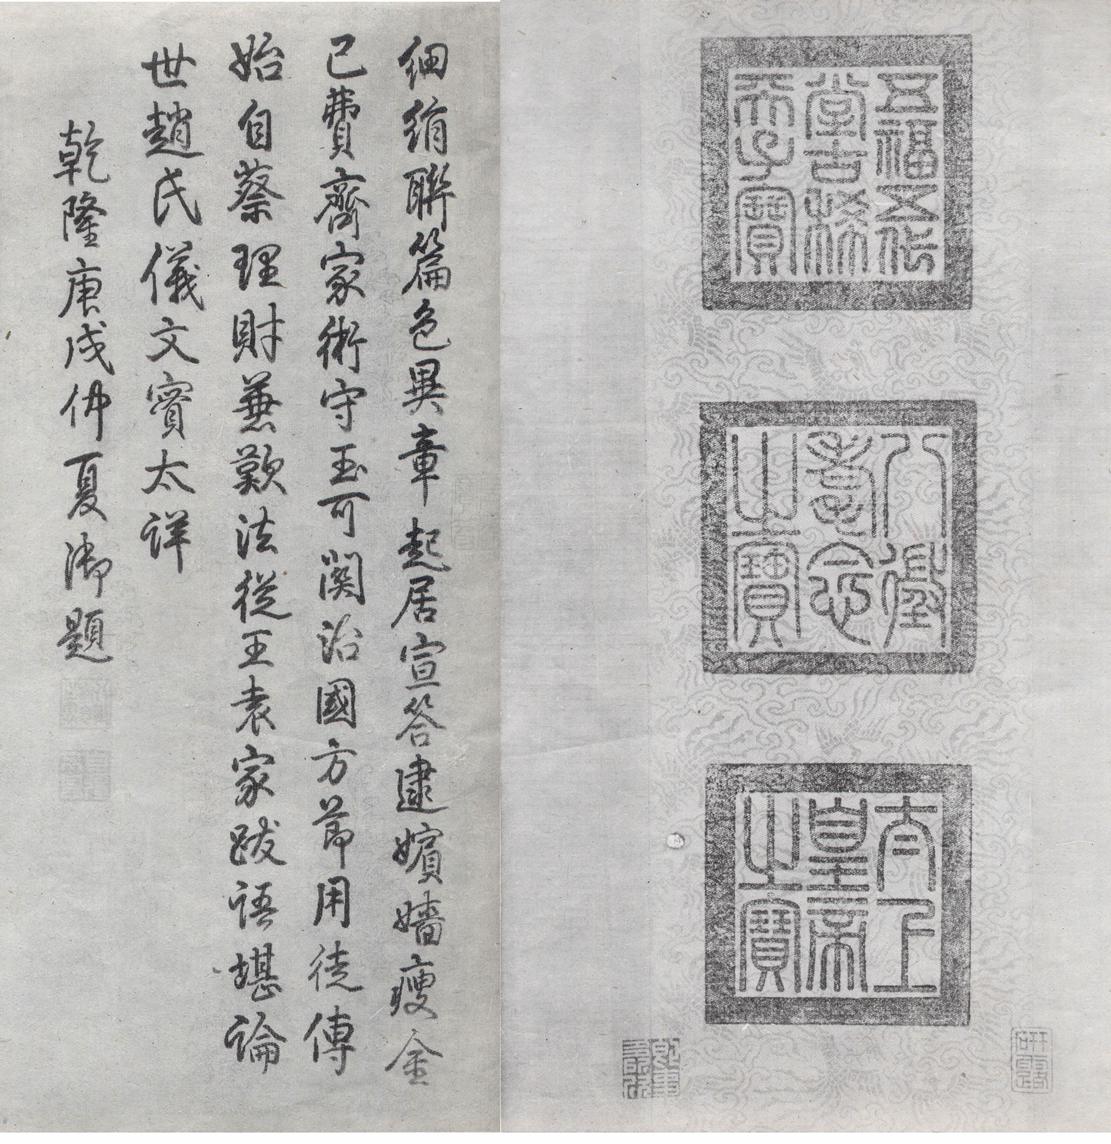 五福五代
堂古稀
天子寶
八徵
耄念
之寶
太上
皇帝
之寶
研露
細絹聯篇色異章起居宣答逮嬪嬙瘦金
已費齊家術守玉可関治國方節用徒傳
始自蔡理財兼歎法從王袁家跋語堪論
世趙氏儀文實太詳
乾隆庚戌仲夏御題